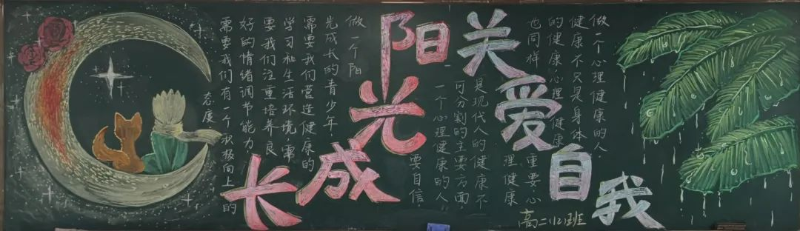 关爱自我
阳光成长
做一个心理健康的人，
健康不只是身体
的健康，心理健康
也同样重要心
理健康
是现代人的健康不
可分割的主要方面
一个心理健康的人，
要自信，
做一个阳
光成长的青少年，
需要我们营造健康的
学习和生活环境，需
要我们注重培养良
好的情绪调节能力
需要我们有一个积极向上的
态度
高二(12)班